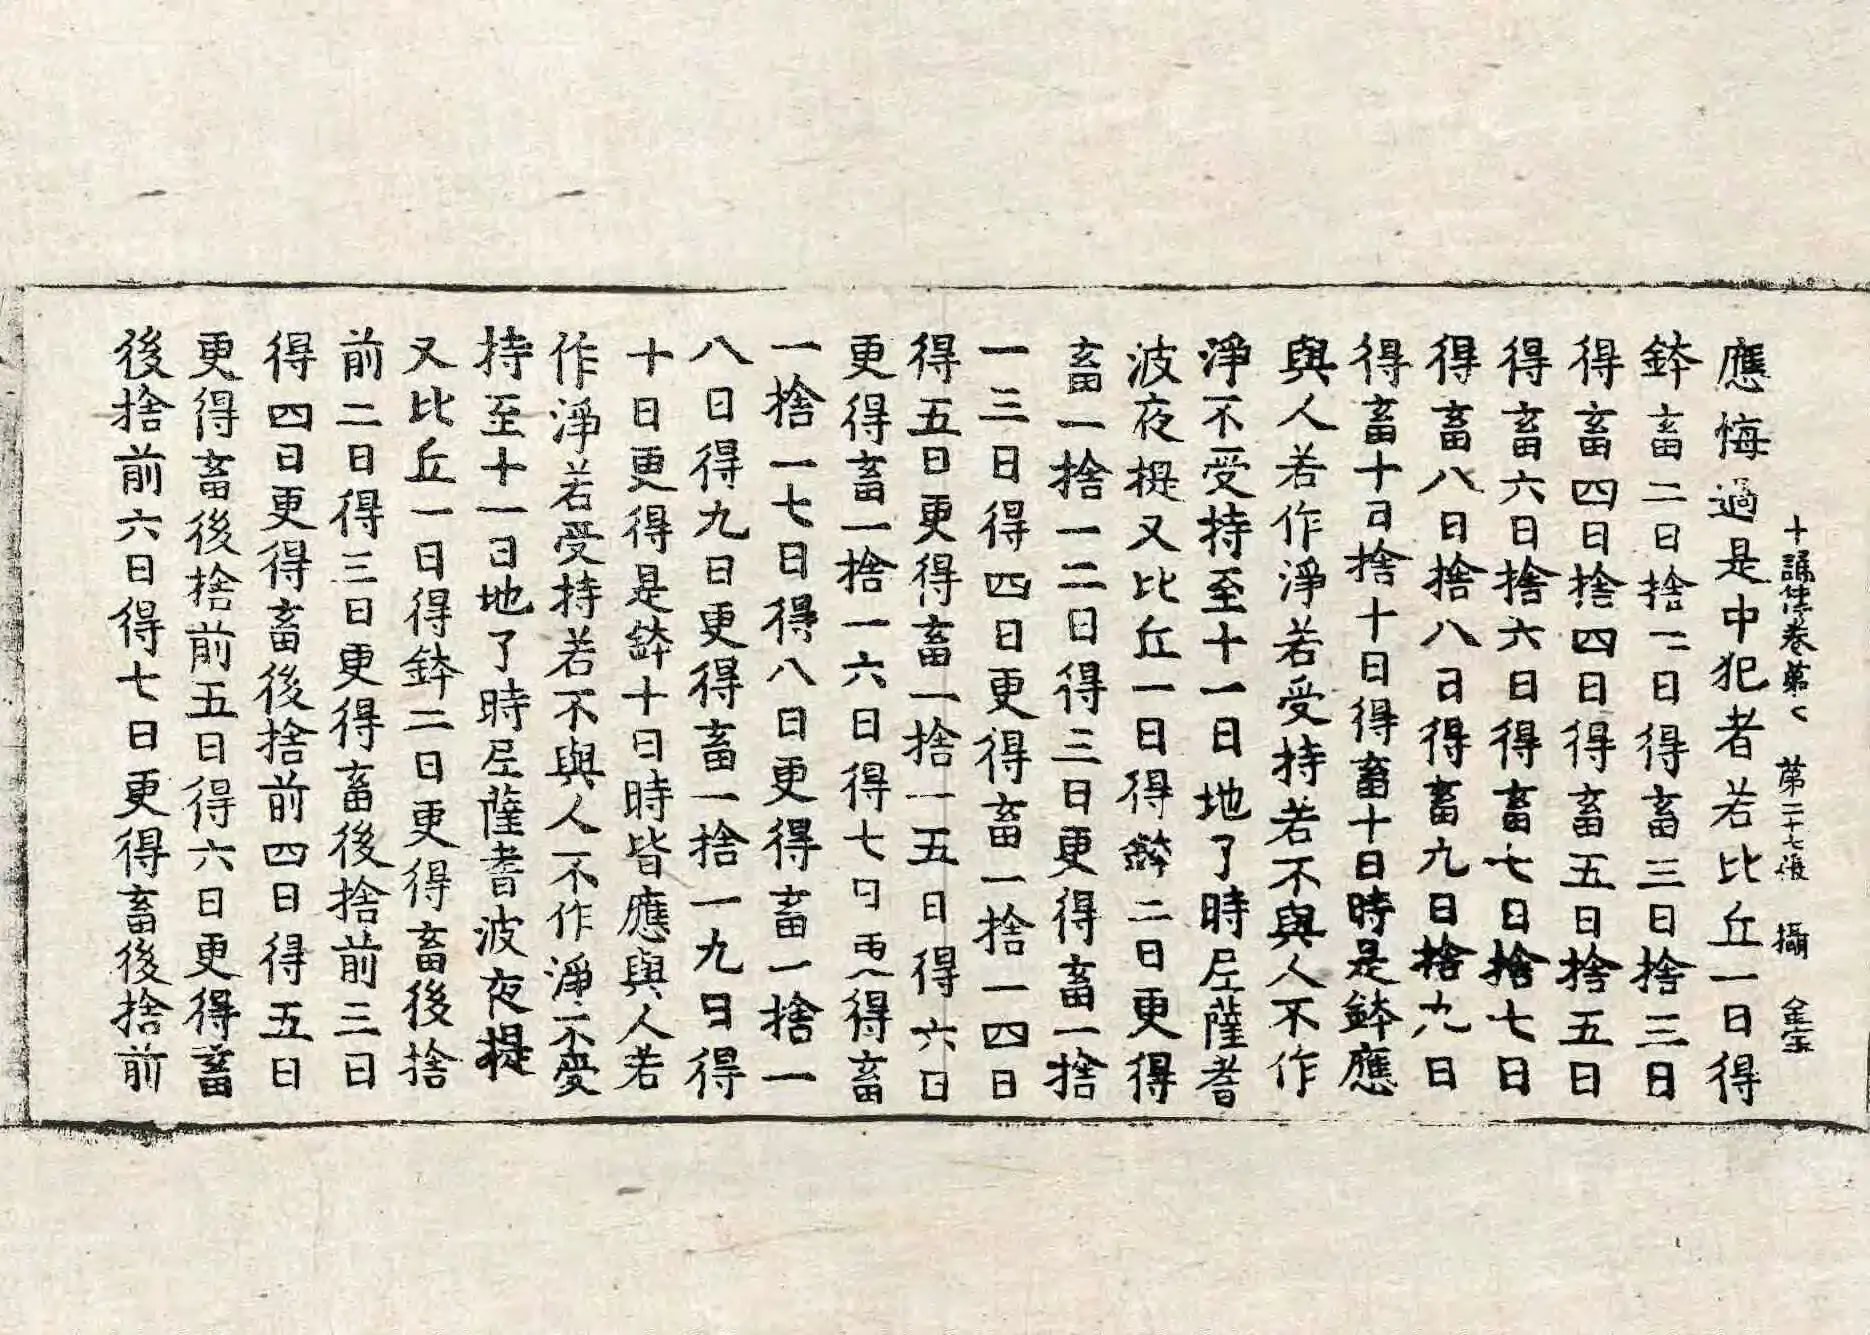 十誦律卷第七 第二十七張 攝 金
應悔過是中犯者若比丘一日得
鉢畜二日捨二日得畜三日捨三日
得畜四日捨四日得畜五日捨五日
得畜六日捨六日得畜七日捨七日
得畜八日捨八日得畜九日捨九日
得畜十日捨十日得畜十日時是鉢應
與人若作淨若受持若不與人不作
淨不受持至十一日地了時尼薩耆
波夜提又比丘一日得鉢二日更得
畜一捨一二日得三日更得畜一捨
一三日得四日更得畜一捨一四日
得五日更得畜一捨一五日得六日
更得畜一捨一六日得七日更得畜
一捨一七日得八日更得畜一捨一
八日得九日更得畜一捨一九日得
十日更得是鉢十日時皆應與人若
作淨若受持若不與人不作淨不受
持至十一日地了時尼薩耆波夜提
又比丘一日得鉢二日更得畜後捨
前二日得三日更得畜後捨前三日
得四日更得畜後捨前四日得五日
更得畜後捨前五日得六日更得畜
後捨前六日得七日更得畜後捨前